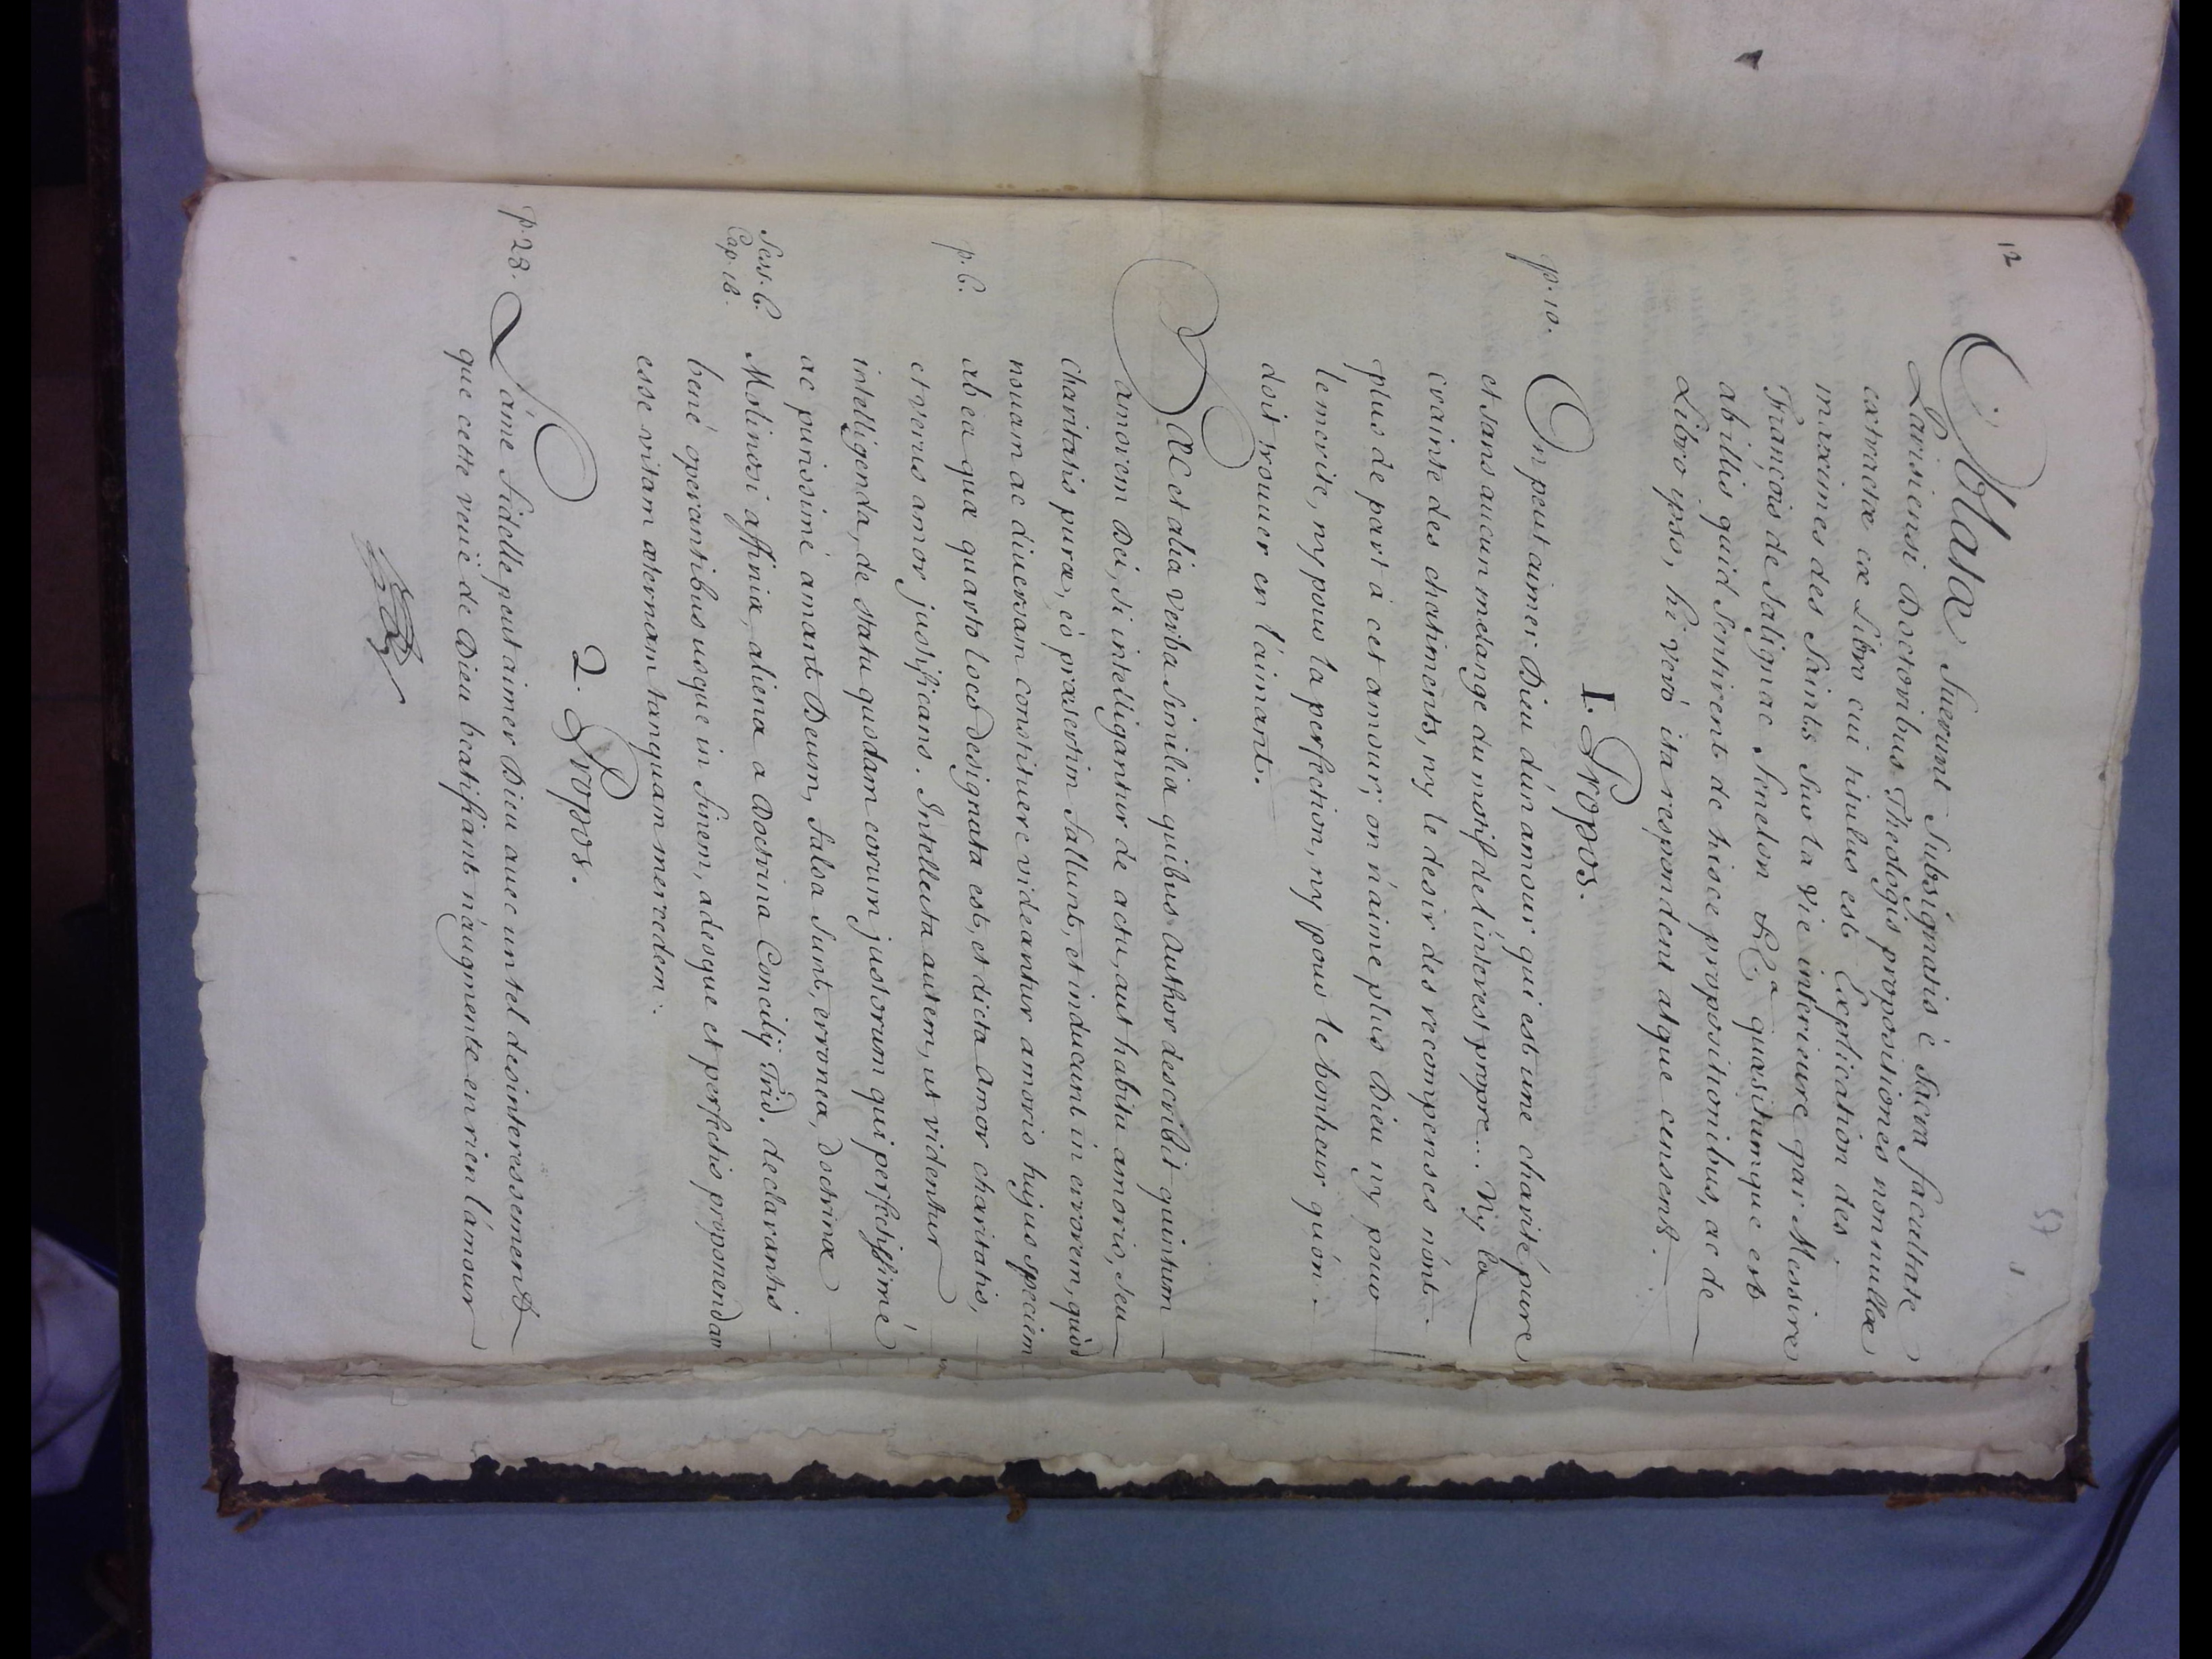 12
57
Oblatæ fuerunt subsignatis è sacra facultate
Parisiensi Doctoribus Theologis propositiones nonnullæ
extractæ ex Libro cui titulus est Explication des
maximes des saints sur la vie interieure par Messire
François de Salignac Fenelon &c.ª quæsitumque est
ab illis quid sentirent de hisce propositionibus, ac de
Libro ipso, hi verò ita respondent atque censent.
I. Propos.
p. 10. On peut aimer Dieu d'un amour qui est une charité pure
et sans aucun melange du motif de l'interest propre... Ny la
crainte des chatiments, ny le desir des recompenses n'ont
plus de part à cet amour; on n'aime plus Dieu ny pour
le merite, ny pour la perfection, ny pour le bonheur qu'on
doit trouver en l'aimant.
Hæc et alia verba similia quibus Author describit quintum
amorem Dei, si intelligantur de actu, aut habitu amoris, seu
charitatis puræ, eò præsertim fallunt, et inducunt in errorem, quòd
nouam ac diuersam constituere videantur amoris hujus speciem
p. 6. ab ea quæ quarto loco designata est, et dicta amor charitatis,
et verus amor justificans. Intellecta autem, ut videntur
intelligenda, de statu quodam eorum justorum qui perfectissimé
ac purissimé amant Deum, falsa sunt, erronea, doctrinæ
Sess. 6. Cap. 16. Molinosi affinia, aliena a Doctrina Concilij Trid. declarantis
bené operantibus usque in finem, adeoque et perfectis proponendam
esse vitam æternam tanquam mercedem.
2. Propos.
p. 23. L'áme fidelle peut aimer Dieu auec un tel desinteressement
que cette veuë de Dieu beatifiant n'augmente en rien l'ámour